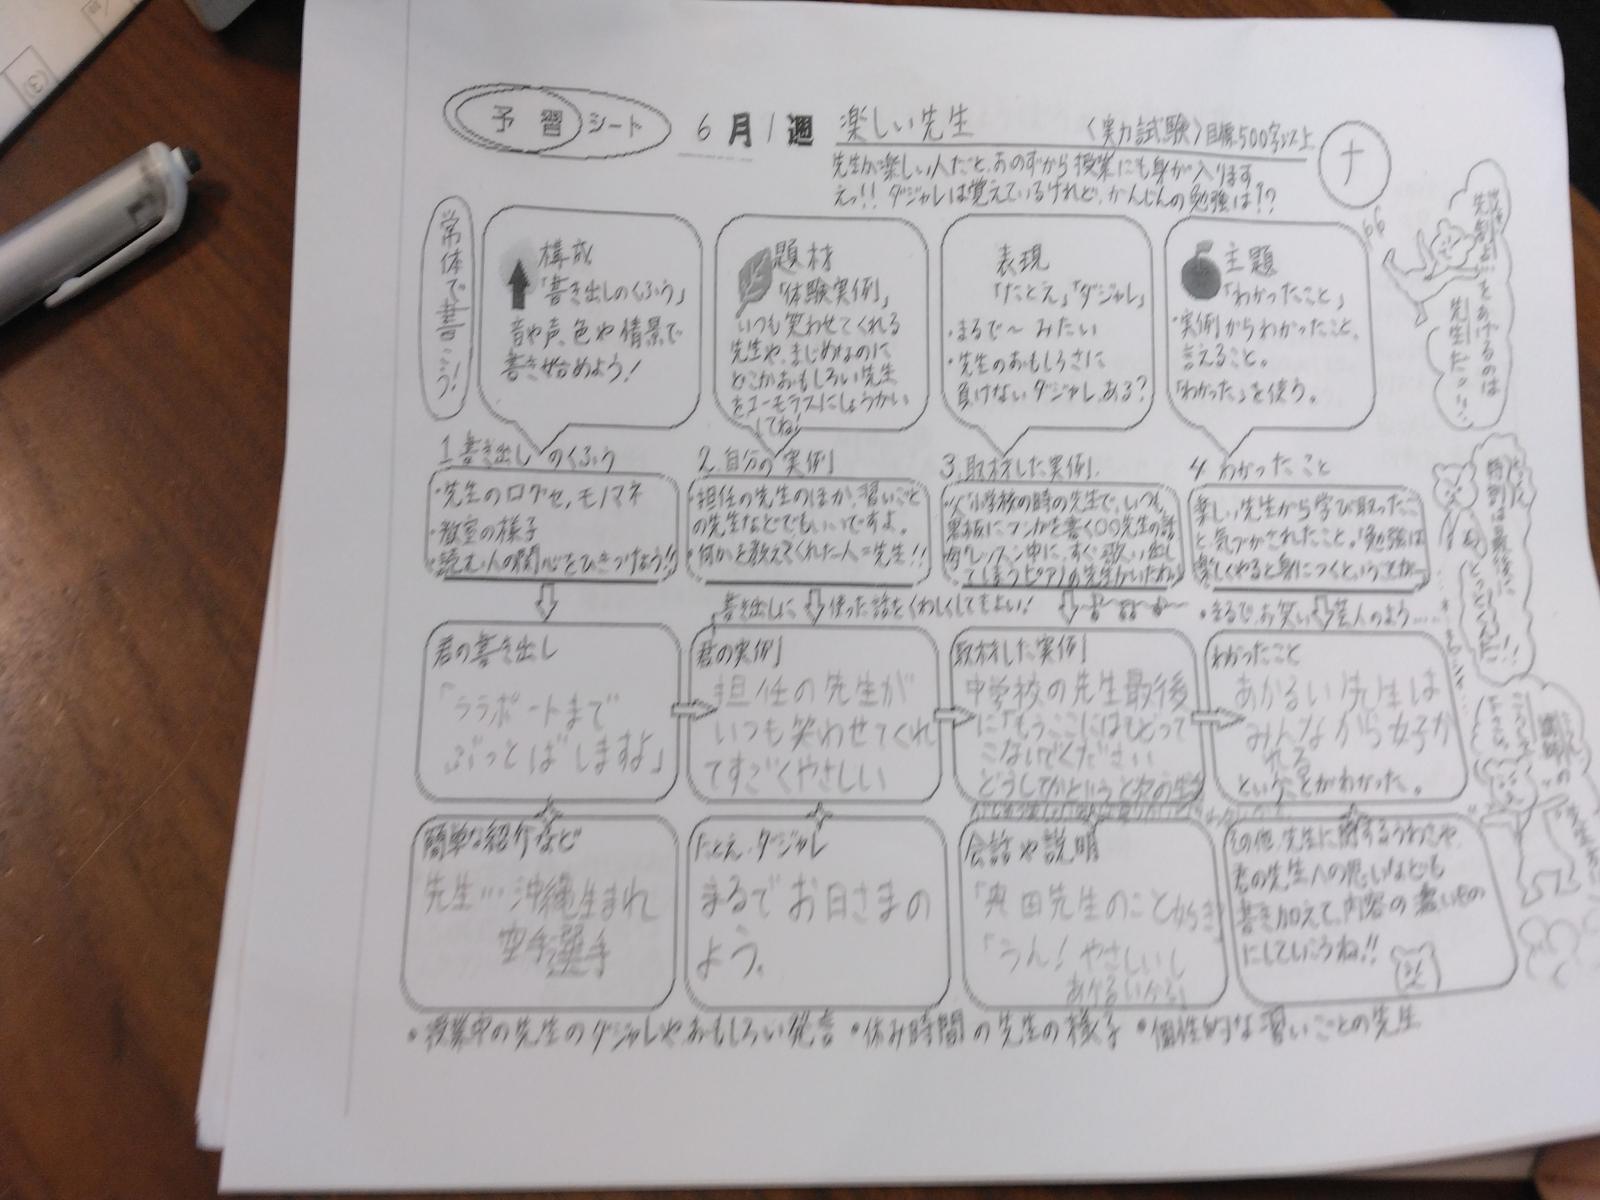 予習シード
6月1週 楽しい先生
〈実力試験〉目標500字以上
ナ
先生が楽しい人だと、あのずから授業にも身が入ります
えっ!!ダジャレは覚えているけれど、かんじんの勉強は!?
常体で書こう!
構成
「書き出しのくふう」
音や声、色や情景で
書き始めよう!
題材
「体験実例」
いつも笑わせてくれる
先生や、まじめなのに
どこかおもしろい先生
をユーモラスにしょうかい
してね!
表現
「たとえ」「ダジャレ」
・まるで〜みたい
・先生のおもしろさに
負けないダジャレ、ある?
主題
「わかったこと」
・実例からわかったこと、
言えること。
「わかった」を使う。
1.書き出しのくふう
・先生の口グセ、モノマネ
・教室の様子
・読む人の関心をひきつけよう!!
2.自分の実例
・担任の先生のほか、習いごと
の先生などでもいいですよ。
・何かを教えてくれた人=先生!!
3.取材した実例
小学校の時の先生で、いつも
黒板にマンガを書く〇〇先生の話
レッスン中に、すぐ歌い出し
てしまうピアノの先生がいたわ
4.わかったこと
楽しい先生から学び取ったこ
と、気づかされたこと。「勉強は
楽しくやると身につくという
書き出しに使った話をくわしくしてもよい!
・まるで、お笑い芸人のよう……
君の書き出し
「ララポートまで
ぶっとばしますよ」
君の実例
担任の先生が
いつも笑わせてくれ
てすごくやさしい
取材した実例
中学校の先生最後
に「もうここにはもどって
こないでください
どうしてかというと次の
わかったこと
あかるい先生は
みんなから
れる
ということがわかった。
簡単な紹介など
先生…沖縄生まれ
空手選手
たとえ、ダジャレ
まるでお日さまの
よう。
会話や説明
「奥田先生のこと
「うん!やさしいし
あかるいから」
その他、先生に関するうわさや、
君の先生への思いなども
書き加えて、内容の濃いもの
にしていこうね!!
・授業中の先生のダジャレやおもしろい発言 ・休み時間の先生の様子 ・個性的な習いごとの先生